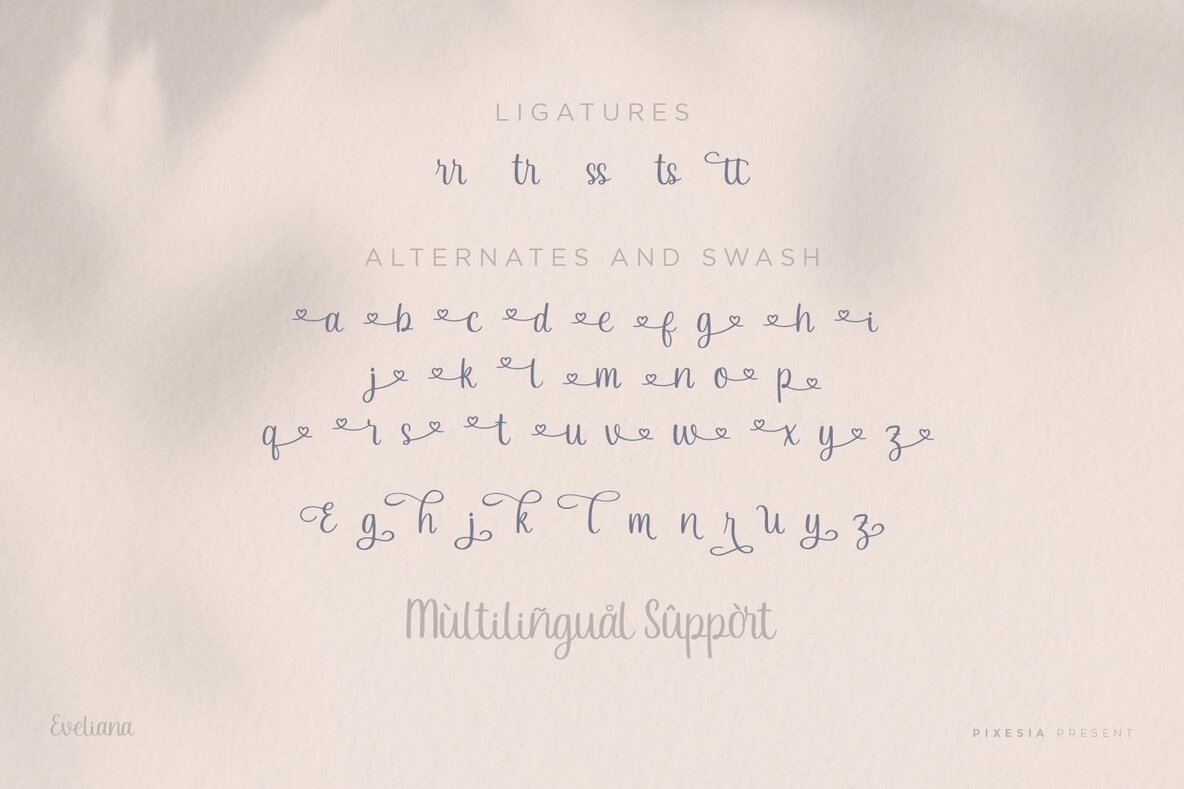 LIGATURES
rr tr ss ts tt
ALTERNATES AND SWASH
a b c d e f g h i
j k l m n o p
q r s t u v w x y z
E g h j k l m n r u y z
Mùltiliñguål Sûppòrt
Eveliana
PIXESIA PRESENT